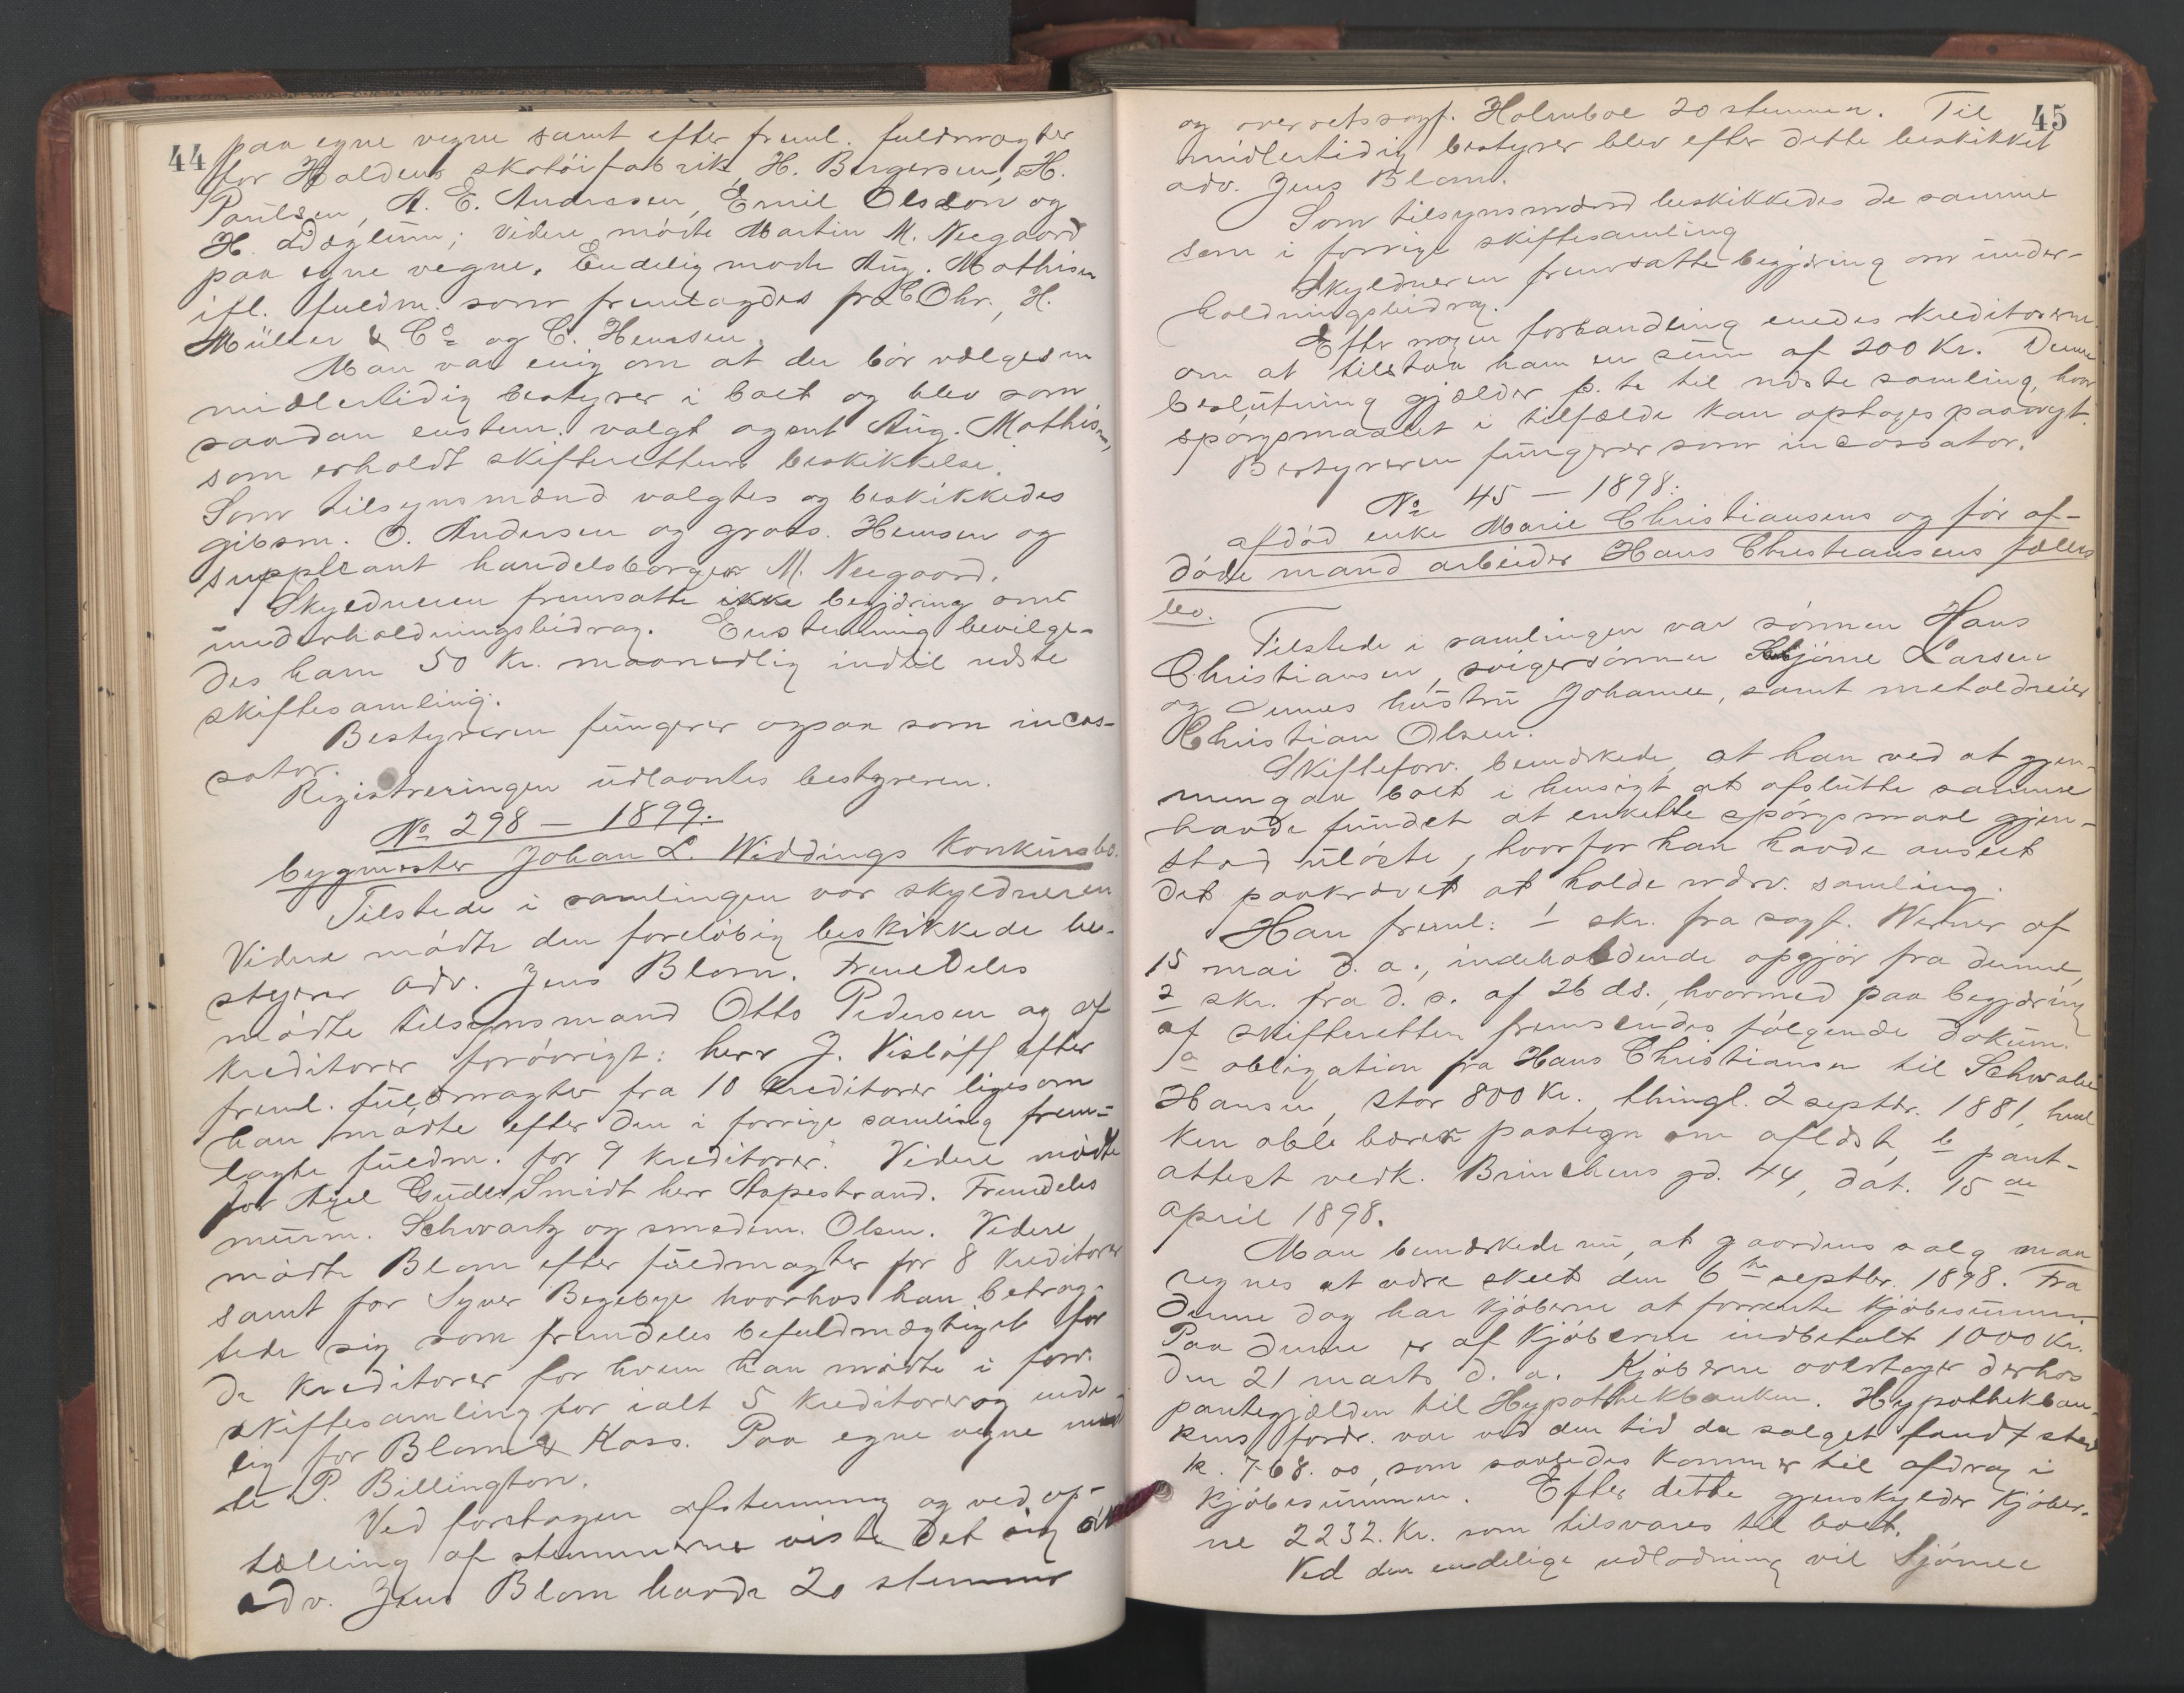 44
paa egne vegne samt efter freml. fuldmagter
for Haldens skotöifabrik, H. Bergersen, H.
Paulsen, A. E. Andersen, Emil Olsson og
H. Döglum; videre mödte Martin M. Neegaard
paa egne vegne. Endelig mødte Aug. Mathisen
ifl. fuldm. som fremlagdes fra Chr. H.
Müller & Co og C. Hemsen.
Man var enig om at der bör vælges en
midlertidig bestyrer i boet og blev som
saadan enstem. valgt agent Aug. Mathisen,
som erholdt skifterettens beskikkelse.
Som tilsynsmænd valgtes og beskikkedes
gibsm. O. Andersen og gross. Hemsen og
suppleant handelsborger M. Neegaard.
Skyldneren fremsatte ikke begjæring om
underholdningsbidrag. Enstemmig bevilge-
des ham 50 Kr. maanedlig indtil næste
skiftesamling.
Bestyreren fungerer ogsaa som incas-
sator.
Registreringen udlaantes bestyreren.
No 298 - 1899.
bygmester Johan L. Widdings Konkursbo.
Tilstede i samlingen var skyldneren
Videre mödte den forelöbig beskikkede be-
styrer adv. Jens Blom. Fremdeles
mödte tilsynsmand Otto Pedersen og af
kreditorer forövrigt: herr J. Vislöff efter
freml. fuldmagter fra 10 kreditorer ligesom
han mödte efter den i forrige samling frem-
lagte fuldm. for 9 kreditorer. Videre mödte
for Axel Gude Smidt herr Aspestrand. Fremdeles
murm. Schwartz og smedem. Olsen. Videre
mödte Blom efter fuldmagter for 8 kreditorer
samt for Syver Begebye hvorhos han betrag-
tede sig som fremdeles befuldmægtiget for
de kreditorer for hvem han mödte i forr.
skiftesamling for ialt 5 kreditorer og ende-
lig for Blom & Kass. Paa egne vegne möd-
te P. Billington.
Ved foretagen afstemning og ved op-
tælling af stemmerne viste det sig at
adv. Jens Blom havde 20 stemmer
45
og overretssagf. Holmboe 20 stemmer. Til
midlertidig bestyrer blev efter dette beskikket
adv. Jens Blom.
Som tilsynsmænd beskikkedes de samme
som i forrige skiftesamling
Skyldneren fremsatte begjæring om under-
holdningsbidrag.
Efter nogen forhandling enedes kreditorerne
om at tilstaa ham en sum af 200 Kr. Denne
beslutning gjælder p. te til næste samling, hvor
spörgsmaalet i tilfælde kan optages paa nyt.
Bestyreren fungerer som incassator.
No 45 - 1898.
afdöd enke Marie Christiansens og för af-
döde mand arbeider Hans Christiansens fælles
bo.
Tilstede i samlingen var sönnen Hans
Christiansen, svigersönnen Hjörne Larsen
og dennes hustru Johanne, samt metaldreier
Christian Olsen.
Skifteforv. bemærkede, at han ved at gjen-
nemgaa boet i hensigt at afslutte samme
havde fundet at enkelte spörgsmaal gjen-
stod ulöste, hvorfor han havde anseet
det paakrævet at holde nærv. samling.
Han freml: 1 skr. fra sagf. Werner af
15 mai d. a., indeholdende opgjör fra denne,
2 skr. fra d. s. af 26 ds., hvormed paa begjæring
af skifteretten fremsendes fölgende dokum.
a obligation fra Hans Christiansen til Schwabe
Hansen, stor 800 Kr., thingl. 2 septbr. 1881, hvil
ken obl. bærer paategn om aflöst, b pant-
attest vedk. Brinchens gd. 44, dat. 15 de
april 1898.
Man bemærkede nu, at gaardens salg maa
regnes at være skeet den 6te septbr. 1898. Fra
denne dag har kjöberne at forrente kjöbesummen.
Paa denne er af kjöberne indbetalt 1000 Kr.
den 21 marts d. a. Kjöberne overtager derhos
pantegjælden til Hypothekbanken. Hypothekban-
kens fordr. var ved den tid da salget fandt sted
k. 768.00, som saaledes kommer til afdrag i
kjöbesummen. Efter dette gjenskylder kjöber-
ne 2232. Kr. som tilsvares til boet.
Ved den endelige udlodning vil Hjörne